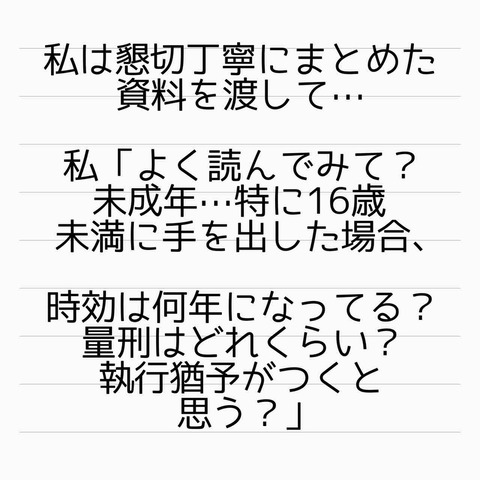 私は懇切丁寧にまとめた
資料を渡して…
私「よく読んでみて？
未成年…特に16歳
未満に手を出した場合、
時効は何年になってる？
量刑はどれくらい？
執行猶予がつくと
思う？」